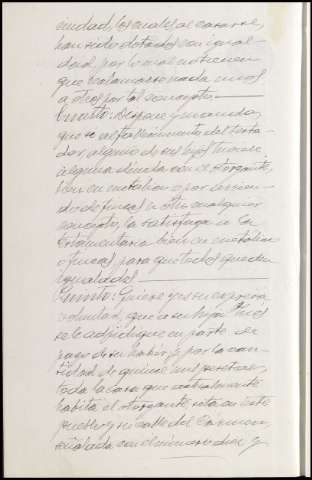 ciudad, los cuales al casarse,
han sido dotados con igual-
dad, por lo cual no tienen
que reclamarse nada unos
a otros por tal concepto.
Cuarto: Dispone y manda,
que si al fallecimiento del testa-
dor alguno de sus hijos tuviese
alguna deuda con el otorgante,
bien en metálico o por arrien-
do de fincas u otro cualquier
concepto, la satisfaga a la
testamentaría bien en metálico
o fincas, para que todos queden
igualados.
Quinto: Quiere y es su expresa
voluntad, que a su hijo
se le adjudique en parte de
pago de su haber, y por la can-
tidad de quince mil pesetas,
toda la casa que actualmente
habita el otorgante, sita en este
pueblo y su calle del Carmen,
señalada con el número diez y